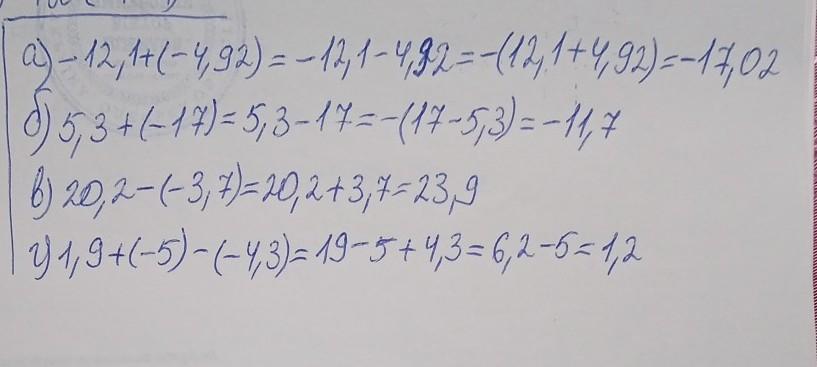 а) -12,1+(-4,92)=-12,1-4,92=-(12,1+4,92)=-17,02
б) 5,3+(-17)=5,3-17=-(17-5,3)=-11,7
в) 20,2-(-3,7)=20,2+3,7=23,9
г) 1,9+(-5)-(-4,3)=19-5+4,3=6,2-5=1,2